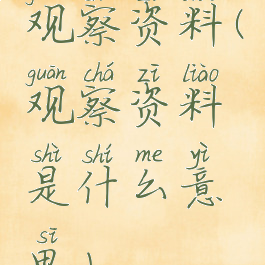 观察资料(
guān chá zī liào
观察资料
shì shí me yì
是什么意
sī
思)